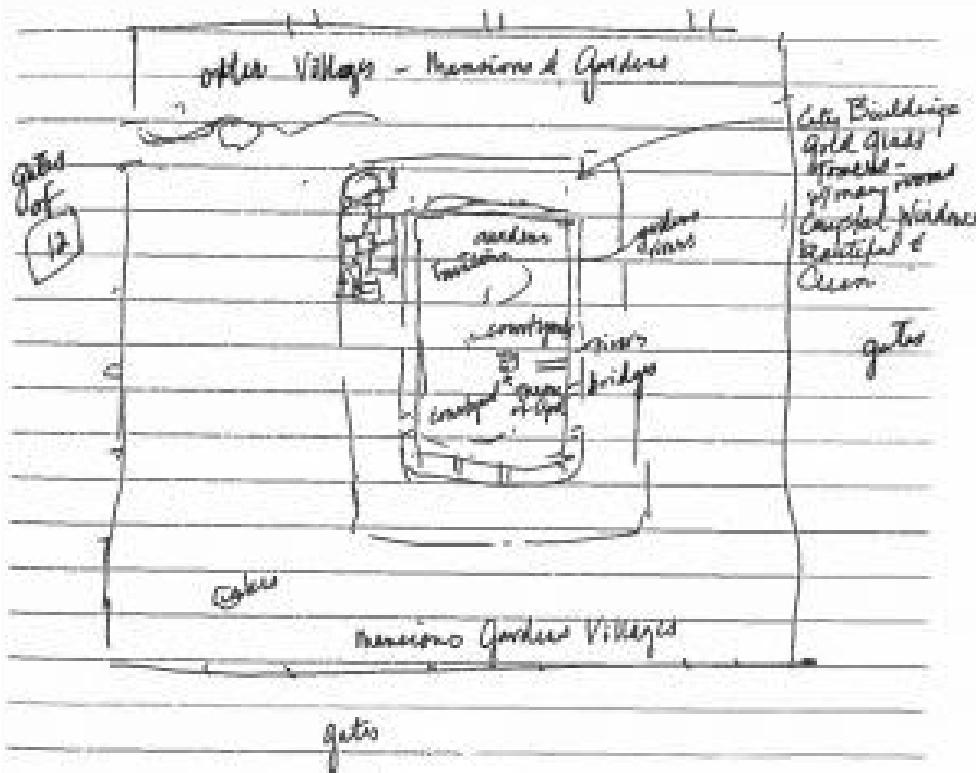 other Villages - Mansions & Gardens
City Buildings
Gold Glass
Towers -
of many rooms
Crystal Windows
Beautiful &
Clean
gates
of
12
gardens
rivers
gardens
fountains
courtyard
rivers
bridges
courtyard
Throne
of God
gates
lakes
Mansions Gardens Villages
gates